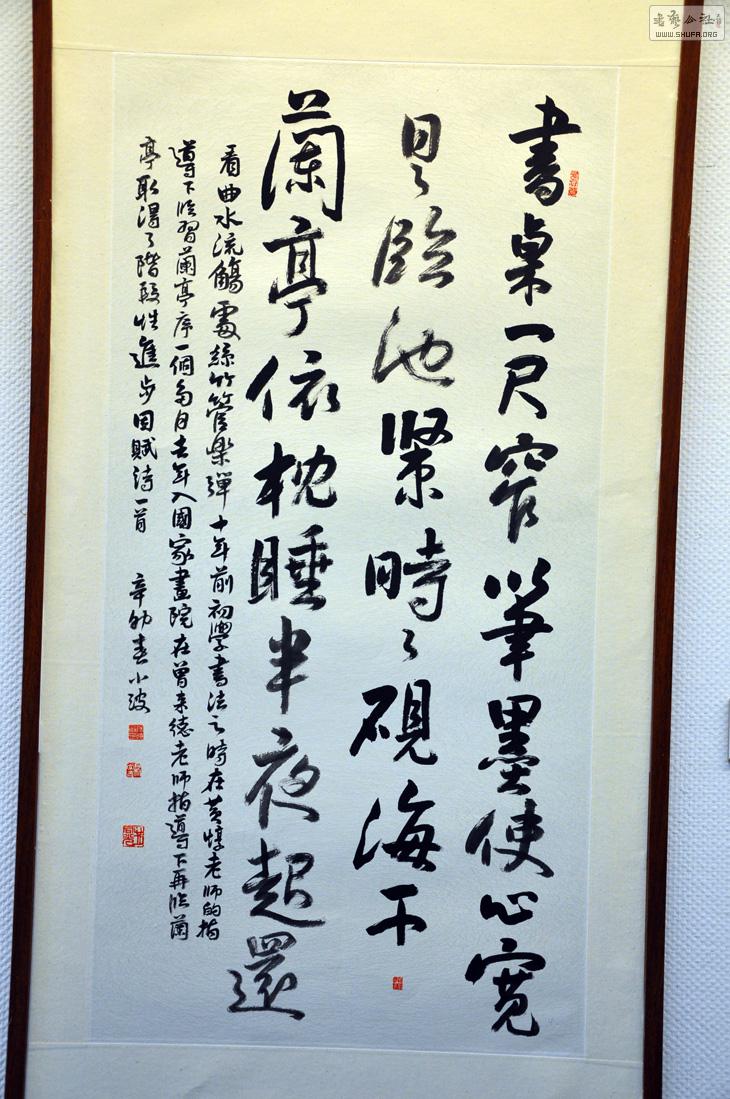 書桌一尺窄筆墨使心寬
日日臨池緊時時硯海干
蘭亭依枕睡半夜起還
看曲水流觴處絲竹管樂彈十年前初學書法之時在黄惇老師的指
導下臨習蘭亭序一個多月去年入國家畫院在曾来德老師指導下再臨蘭
亭取得了階段性進步因賦詩一首 辛卯春小波
WWW.SHUFA.ORG